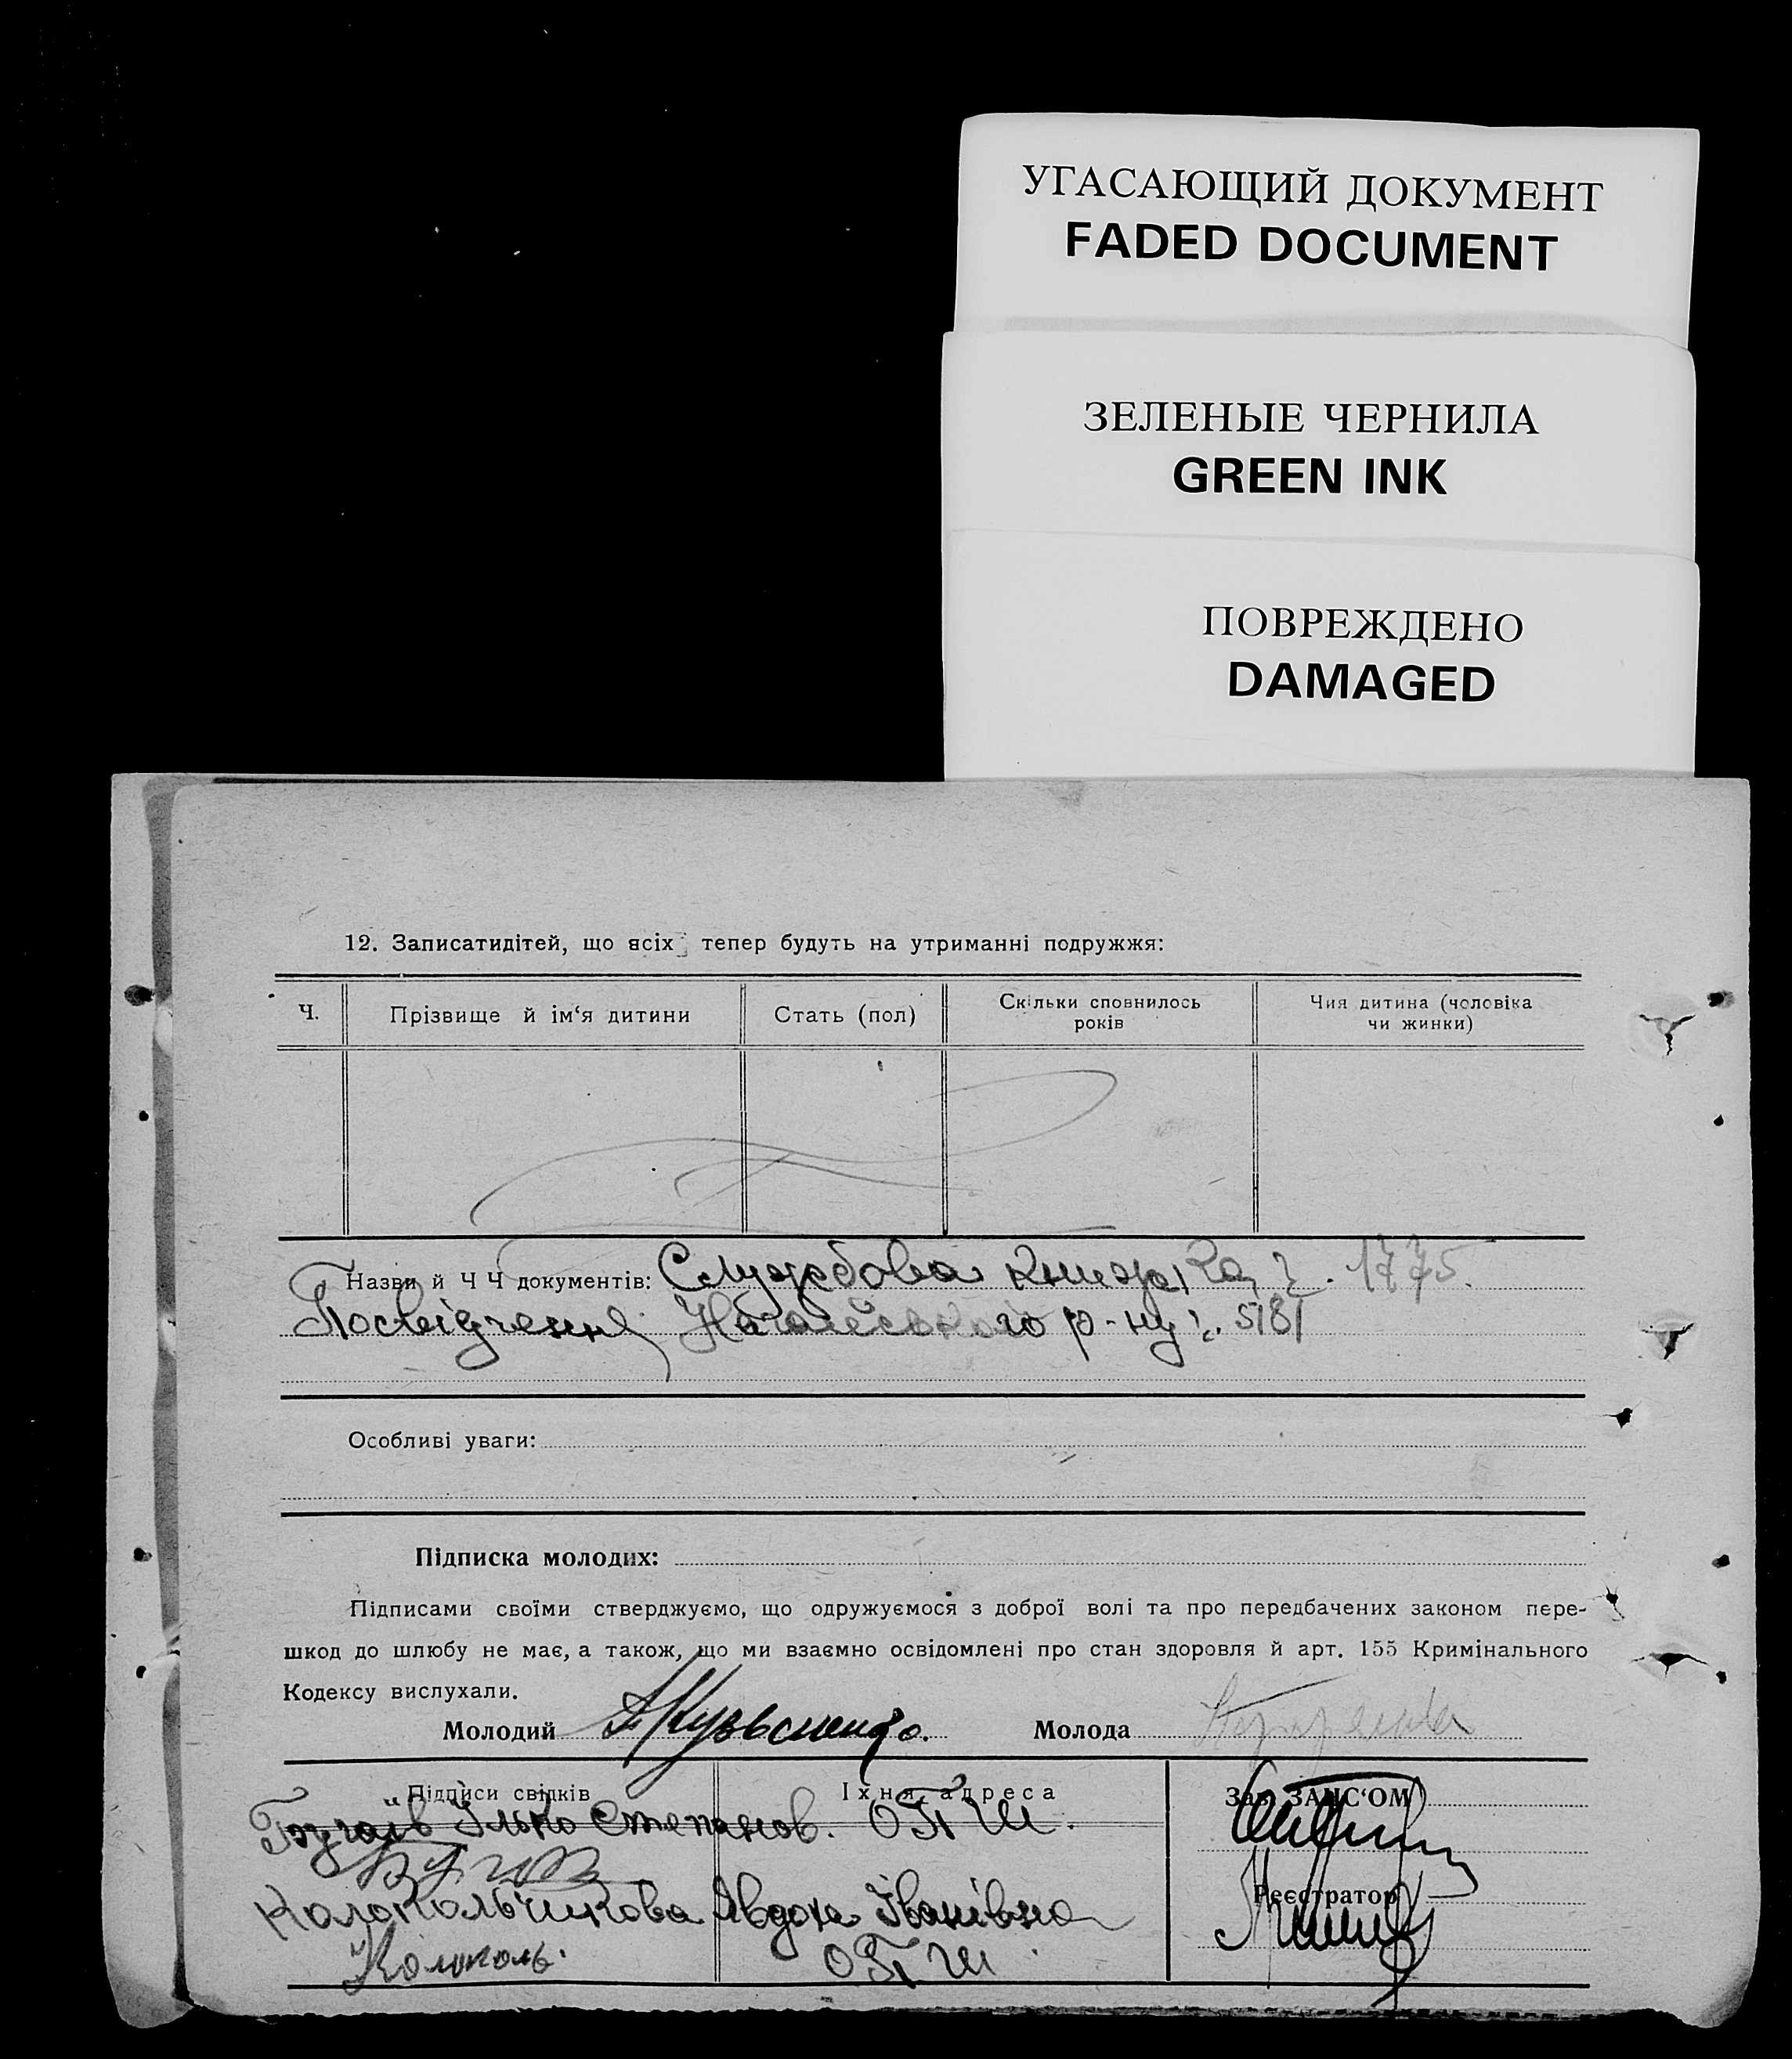 УГАСАЮЩИЙ ДОКУМЕНТ
FADED DOCUMENT
ЗЕЛЕНЫЕ ЧЕРНИЛА
GREEN INK
ПОВРЕЖДЕНО
DAMAGED
12. Записатидітей, що всіх тепер будуть на утриманні подружжя:
Ч. Прізвище й ім‘я дитини Стать (пол) Скільки сповнилось років Чия дитина (чоловіка чи жинки)
Назви й Ч Ч документів: Службова книжка ч. 1775.
Посвідчення р-ну ч. 5181
Особливі уваги:
Підписка молодих:
Підписами своїми стверджуємо, що одружуємося з доброї волі та про передбачених законом пере-
шкод до шлюбу не має, а також, що ми взаємно освідомлені про стан здоровля й арт. 155 Кримінального
Кодексу вислухали.
Молодий Кузьменко. Молода
Підписи свідків Їхня адреса Зав. ЗАГС‘ОМ
Ілько Степанов.
Реєстратор
Колокольчикова Явдоха Іванівна
Колоколь.